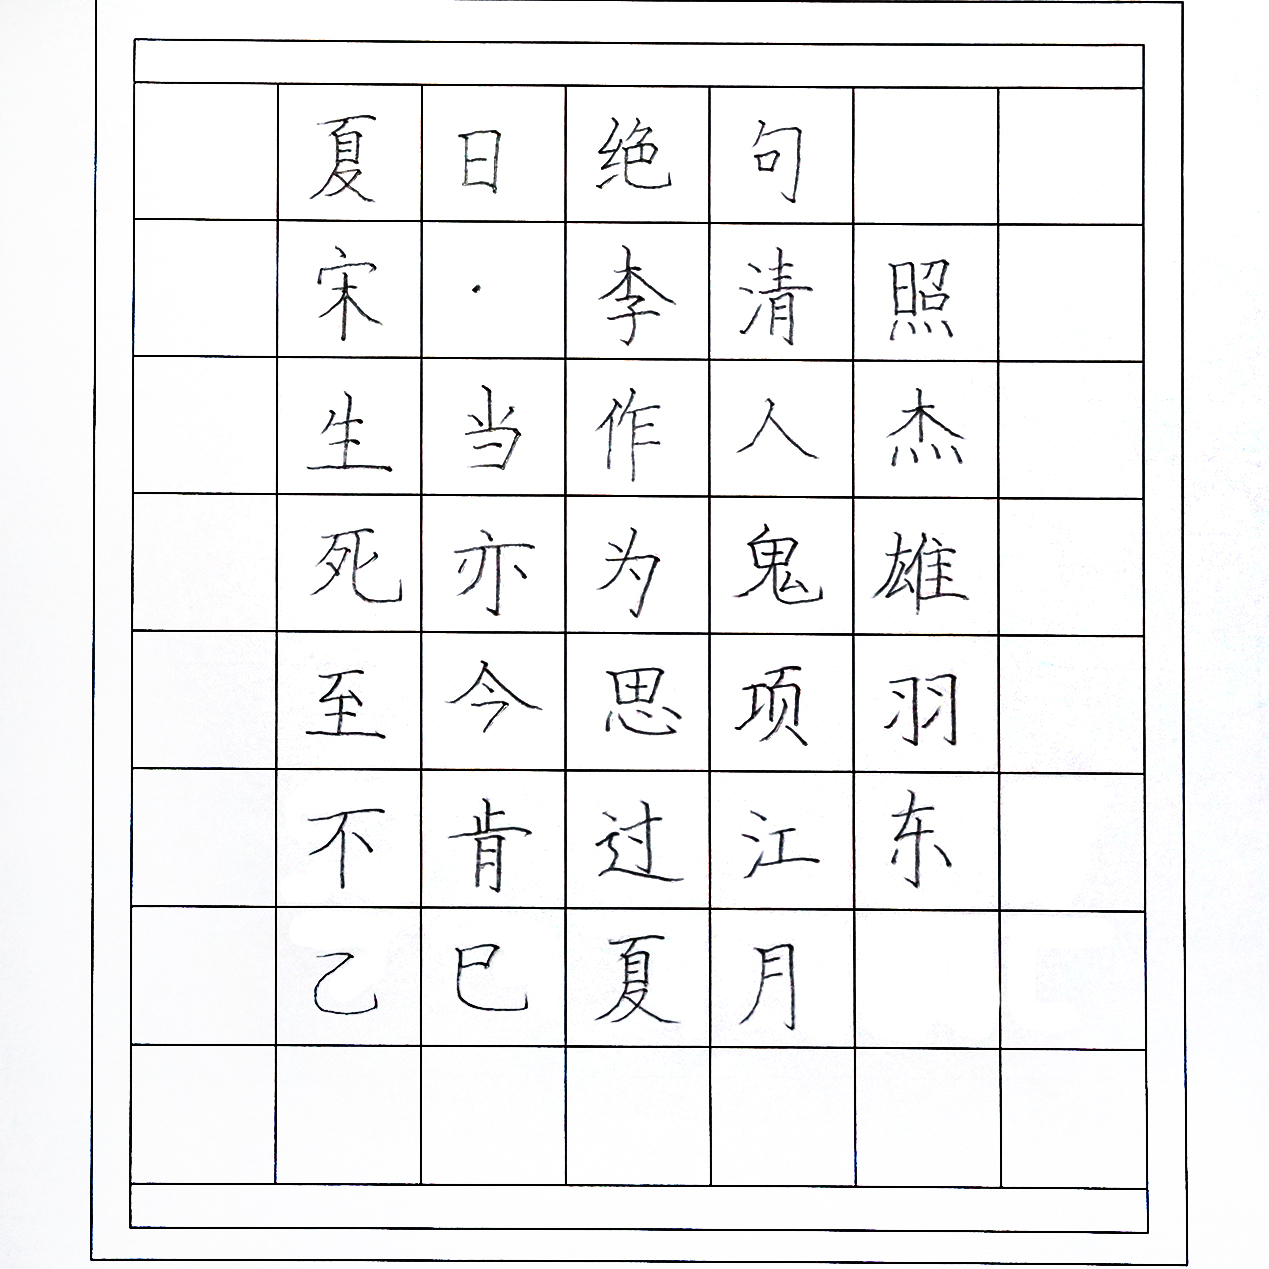 夏日绝句
宋·李清照
生当作人杰
死亦为鬼雄
至今思项羽
不肯过江东
乙巳夏月